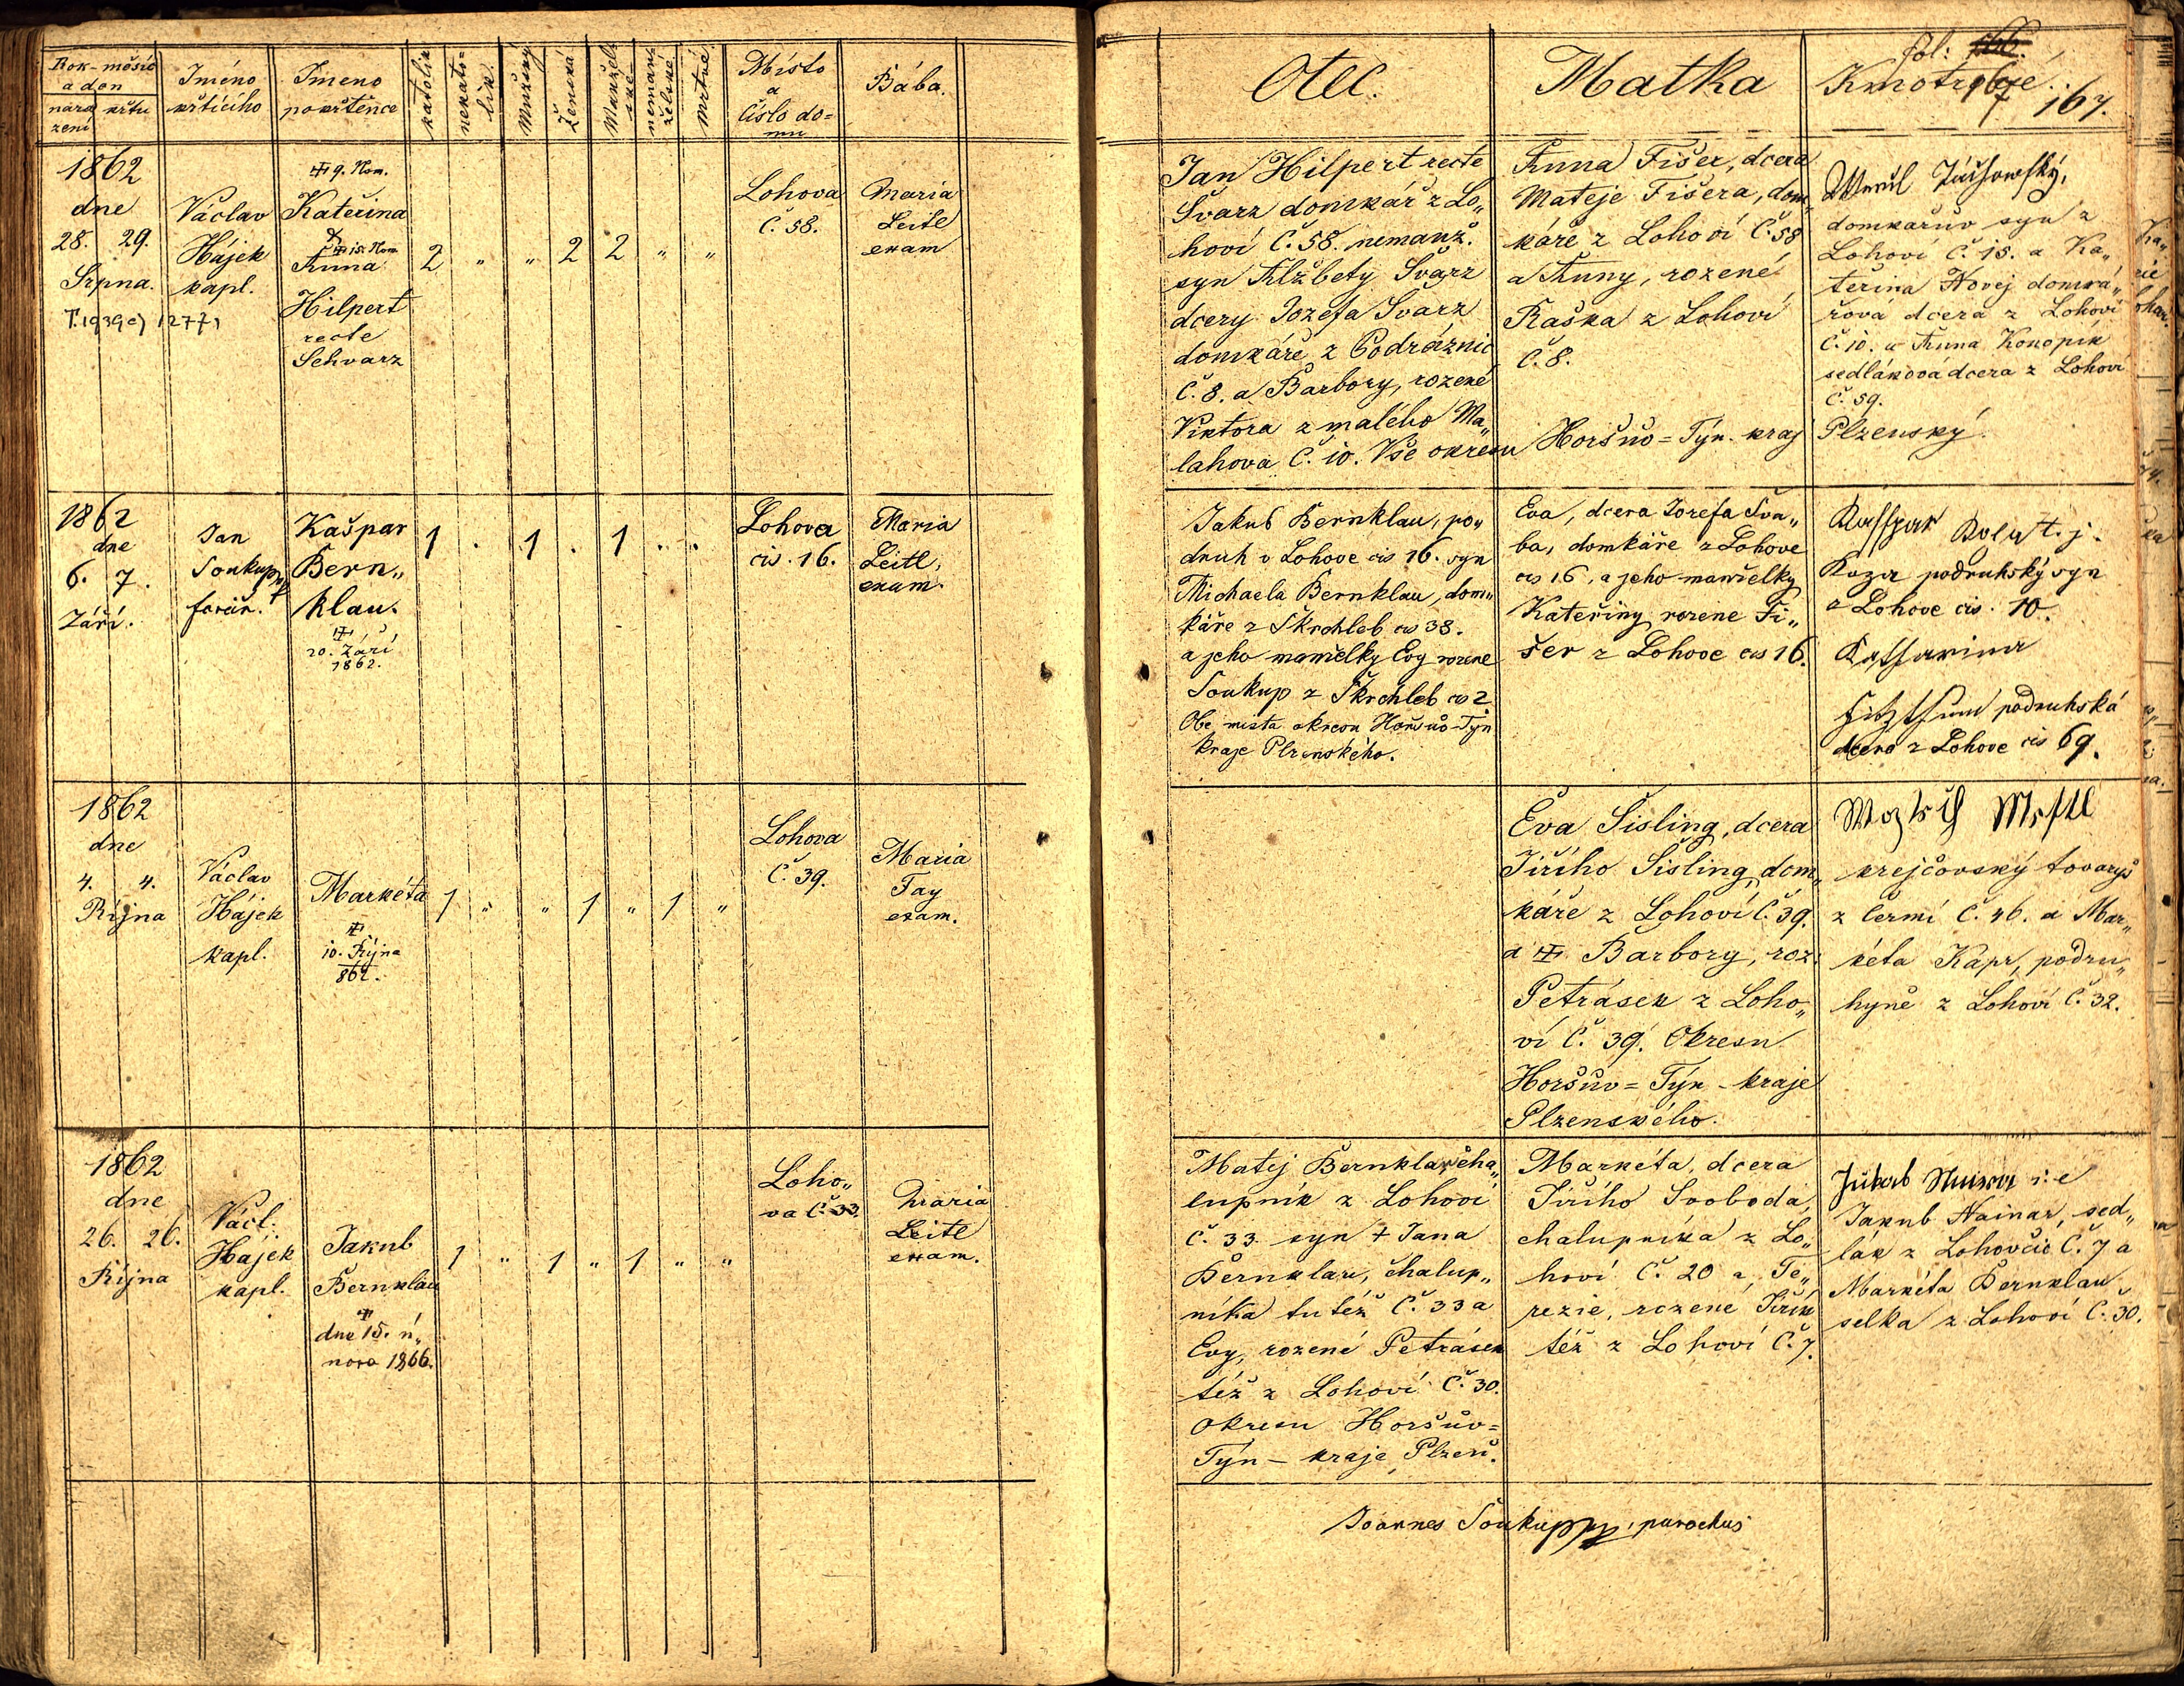 Rok-měsíc
a den
naro
zení
křtu
Jméno
křtícího
Jmeno
pokřtěnce
katolík
nekato=
lík.
Mužský
Ženská
Manžel
ské
nemanž
želské
Mrtvé
Místo
a
číslo do=
mu
Bába.
1862
dne
28. 29.
Srpna.
Václav
Hájek
kapl.
9. Nom.
Kateřina
15. Nom
Anna
Hilpert
recte
Schvarz
2 " " 2 2 " "
Lohova
č. 58.
Maria
Leitl
exam
1862
dne
6. 7.
Září.
Jan
Soukup
farář.
Kašpar
Bern„
klau.
20. Září
1862.
1 . 1 . 1 . .
Lohova
cis. 16.
Maria
Leitl,
exam.
1862
dne
4. 4.
Října
Václav
Hájek
kapl.
Markéta
10. Října
862.
1 " " 1 " 1 "
Lohova
č. 39.
Maria
Tay
exam.
1862
dne
26. 26.
Října
Václ.
Hájek
kapl.
Jakub
Bernklau
dne 15. ú„
nora 1866.
1 " 1 " 1 " "
Loho„
va č. 33.
Maria
Leitl
exam.
Otec.
Matka
fol: 166
Kmotrové
167
167.
Jan Hilpert recte
Švarz domkář z Lo„
hoví č. 58. nemanž.
syn Alžbety Švarz
dcery Jozefa Švarz
domkáře z Podráznic
č. 8. a Barbory, rozené
Viktora z malého Ma„
lahova č. 10. Vše okresu Horšův=Týn. kraj Plzenský.
Anna Fišer, dcera
Mateje Fišera, dom„
káře z Lohoví č. 58
a Anny, rozené
Kaska z Lohoví
č. 8.
domkařův syn z
Lohoví č. 15. a Ka„
teřina Novej domká„
řová dcera z Lohoví
č. 10. a Anna Konopík
sedláková dcera z Lohoví
č. 59.
Jakub Bernklau, po„
druh v Lohove cis 16. syn
Michaela Bernklau, dom„
káře z Škrchleb cis 38.
a jeho manželky Evy rozene
Soukup z Škrchleb cis 2.
Obe mista okresu Horšuo-Týn
kraje Plzenského.
Eva, dcera Jozefa Šva„
ba, domkáře z Lohove
cis 16, a jeho manželky
Kateřiny rozene Fi„
šer z Lohove cis 16.
Kasspar Koza t. j.
Koza podruhský syn
z Lohove cis. 10.
Katharina
podruhská
dcera z Lohove cis 69.
Eva Šisling, dcera
Jiřího Šisling, dom„
káře z Lohoví č. 39.
a Barbory, roz.
Petrásek z Loho„
ví č. 39. Okresu
Horšův=Týn - kraje
Plzenského.
krejčovský tovaryš
z Čermí č. 46. a Mar„
kéta Kápr, podru„
hyně z Lohoví č. 32.
Matej Bernklau, cha„
lupník z Lohoví
č. 33. syn † Jana
Bernklau, chalup„
níka tutéž č. 33 a
Evy, rozené Petrásek
též z Lohoví č. 30.
okresu Horšův=
Týn - kraje Plzeň.
Markéta, dcera
Jiřího Svoboda,
chalupníka z Lo„
hoví č. 20 a Te„
rezie, rozené Jiřík
též z Lohoví č. 7.
Jakob i:e
Jakub Nainar, sed„
lák z Lohovčic č. 7 a
Markéta Bernklau
selka z Lohoví č. 30.
Joannes Soukup, parochus